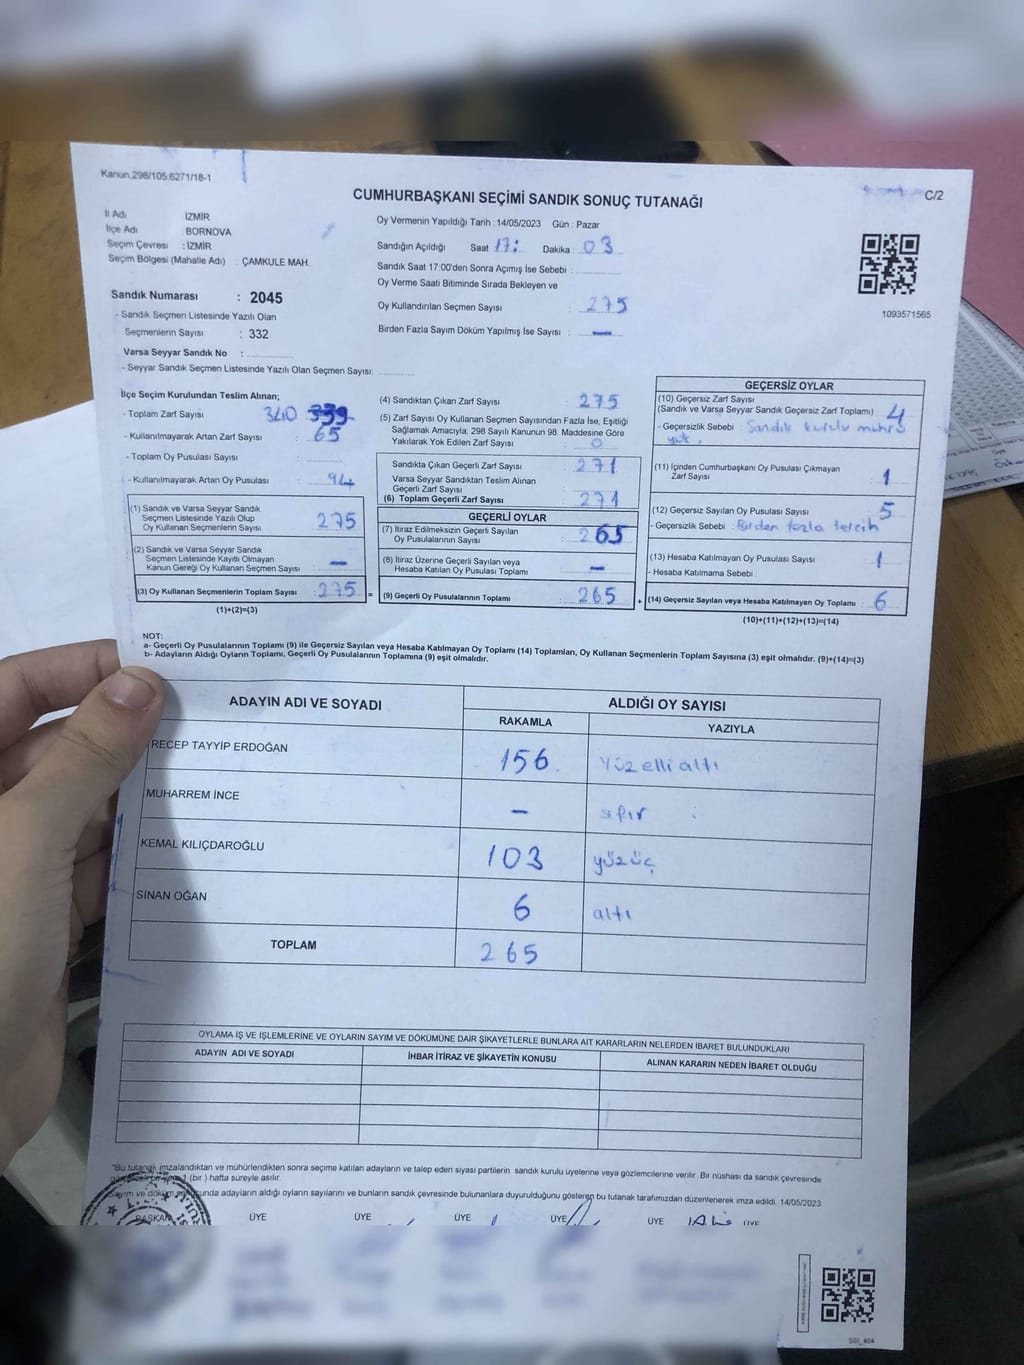 Kanun.298/105,6271/18-1
C/2
CUMHURBAŞKANI SEÇİMİ SANDIK SONUÇ TUTANAĞI
İl Adı İZMİR
İlçe Adı BORNOVA
Seçim Çevresi : İZMİR
Seçim Bölgesi (Mahalle Adı) : ÇAMKULE MAH.
Sandık Numarası : 2045
- Sandık Seçmen Listesinde Yazılı Olan
Seçmenlerin Sayısı : 332
Varsa Seyyar Sandık No :
- Seyyar Sandık Seçmen Listesinde Yazılı Olan Seçmen Sayısı:
Oy Vermenin Yapıldığı Tarih : 14/05/2023 Gün : Pazar
Sandığın Açıldığı Saat 17: Dakika : 03
Sandık Saat 17:00'den Sonra Açımış İse Sebebi :
Oy Verme Saati Bitiminde Sırada Bekleyen ve
Oy Kullandırılan Seçmen Sayısı : 275
Birden Fazla Sayım Döküm Yapılmış İse Sayısı : -
1093571565
İlçe Seçim Kurulundan Teslim Alınan;
- Toplam Zarf Sayısı 340 339
- Kullanılmayarak Artan Zarf Sayısı : 65
- Toplam Oy Pusulası Sayısı :
- Kullanılmayarak Artan Oy Pusulası : 94
(1) Sandık ve Varsa Seyyar Sandık
Seçmen Listesinde Yazılı Olup
Oy Kullanan Seçmenlerin Sayısı : 275
(2) Sandık ve Varsa Seyyar Sandık
Seçmen Listesinde Kayıtlı Olmayan
Kanun Gereği Oy Kullanan Seçmen Sayısı : -
(3) Oy Kullanan Seçmenlerin Toplam Sayısı : 275 =
(1)+(2)=(3)
(4) Sandıktan Çıkan Zarf Sayısı : 275
(5) Zarf Sayısı Oy Kullanan Seçmen Sayısından Fazla İse, Eşitliği
Sağlamak Amacıyla; 298 Sayılı Kanunun 98. Maddesine Göre
Yakılarak Yok Edilen Zarf Sayısı : 0
Sandıkta Çıkan Geçerli Zarf Sayısı : 271
Varsa Seyyar Sandıktan Teslim Alınan
Geçerli Zarf Sayısı
(6) Toplam Geçerli Zarf Sayısı : 271
GEÇERLİ OYLAR
(7) İtiraz Edilmeksizin Geçerli Sayılan
Oy Pusulalarının Sayısı : 265
(8) İtiraz Üzerine Geçerli Sayılan veya
Hesaba Katılan Oy Pusulası Toplamı : -
(9) Geçerli Oy Pusulalarının Toplamı : 265 +
GEÇERSİZ OYLAR
(10) Geçersiz Zarf Sayısı
(Sandık ve Varsa Seyyar Sandık Geçersiz Zarf Toplamı) : 4
- Geçersizlik Sebebi : Sandık kurulu mührü
yok.
(11) İçinden Cumhurbaşkanı Oy Pusulası Çıkmayan
Zarf Sayısı : 1
(12) Geçersiz Sayılan Oy Pusulası Sayısı : 5
- Geçersizlik Sebebi : Birden fazla tercih
(13) Hesaba Katılmayan Oy Pusulası Sayısı : 1
- Hesaba Katılmama Sebebi :
(14) Geçersiz Sayılan veya Hesaba Katılmayan Oy Toplamı : 6
(10)+(11)+(12)+(13)=(14)
NOT:
a- Geçerli Oy Pusulalarının Toplamı (9) ile Geçersiz Sayılan veya Hesaba Katılmayan Oy Toplamı (14) Toplamları, Oy Kullanan Seçmenlerin Toplam Sayısına (3) eşit olmalıdır. (9)+(14)=(3)
b- Adayların Aldığı Oyların Toplamı, Geçerli Oy Pusulalarının Toplamına (9) eşit olmalıdır.
ADAYIN ADI VE SOYADI ALDIĞI OY SAYISI
RAKAMLA YAZIYLA
RECEP TAYYİP ERDOĞAN 156 yüzelli altı
MUHARREM İNCE - sıfır
KEMAL KILIÇDAROĞLU 103 yüzüç
SİNAN OĞAN 6 altı
TOPLAM 265
OYLAMA İŞ VE İŞLEMLERİNE VE OYLARIN SAYIM VE DÖKÜMÜNE DAİR ŞİKAYETLERLE BUNLARA AİT KARARLARIN NELERDEN İBARET BULUNDUKLARI
ADAYIN ADI VE SOYADI İHBAR İTİRAZ VE ŞİKAYETİN KONUSU ALINAN KARARIN NEDEN İBARET OLDUĞU
*Bu tutanak imzalandıktan ve mühürlendikten sonra seçime katılan adayların ve talep eden siyasi partilerin sandık kurulu üyelerine veya gözlemcilerine verilir. Bir nüshası da sandık çevresinde
1 (bir) hafta süreyle asılır.
Sayım ve döküm sonunda adayların aldığı oyların sayılarını ve bunların sandık çevresinde bulunanlara duyurulduğunu gösteren bu tutanak tarafımızdan düzenlenerek imza edildi. 14/05/2023
BAŞKAN ÜYE ÜYE ÜYE ÜYE ÜYE ÜYE